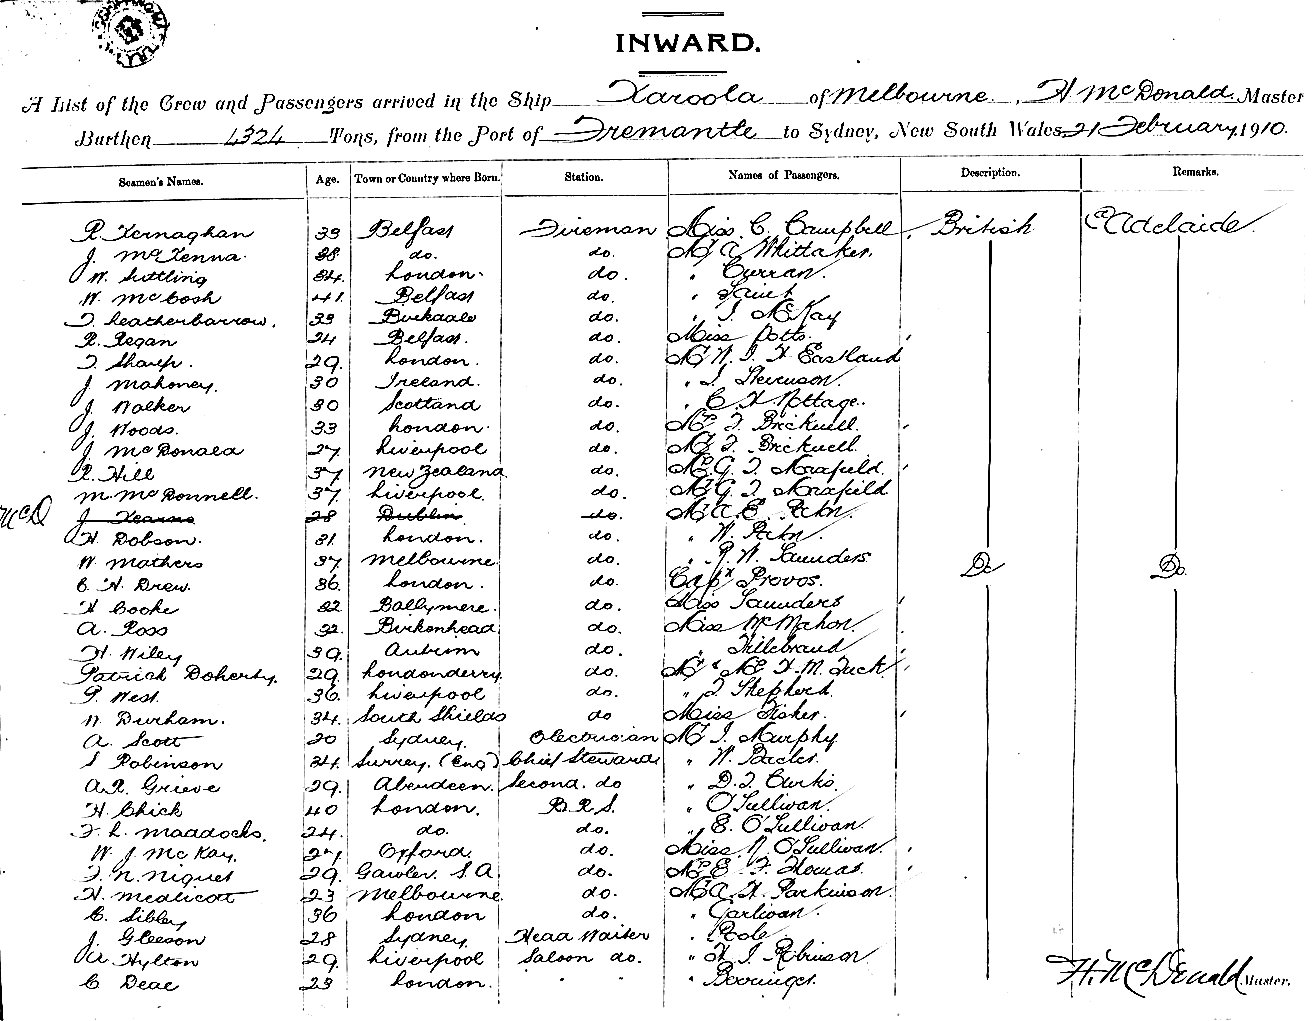 INWARD.
A List of the Crew and Passengers arrived in the Ship Karoola of Melbourne, H McDonald Master
Burthen 4324 Tons, from the Port of Fremantle to Sydney, New South Wales 21 February 1910.
Seamen's Names. Age. Town or Country where Born. Station. Names of Passengers. Description. Remarks.
R. Kernaghan 33 Belfast Fireman Miss C. Campbell British Adelaide
J. McKenna. 38 do. do. Mr A Whittaker.
W. Suttling 34. London. do. " Curran.
W. McCosh 41. Belfast do. " Saint
T. Leatherbarrow. 33 Birkdale do. " J. McKay
R. Regan 24 Belfast. do. Miss Potts.
T. Sharp. 29. London. do. Mr W. J. H Eastland
J. Mahoney. 30 Ireland. do. " J. Stevenson.
J. Walker 30 Scotland do. " C. H. Nottage.
J. Woods. 33 London. do. Mr J. Bricknell.
J. McDonald 27 Liverpool do. Mrs J. Bricknell.
R. Hill 37 New Zealand do. Mr G. J.
M. McDonnell. 37 Liverpool. do. Mrs G. J.
McD J. Kearns 28 Dublin do. Mr A. E.
H. Dobson. 31 London. do. " W.
W. Mathers 37 Melbourne do. " R. W. Saunders.
C. H. Drew. 36. London. do. Capt Provos. Do Do.
H Cooke 32 Ballymere. do. Miss Saunders
A. Ross 32. Birkenhead do. Miss McMahon.
H. Wiley 39. Antrim do. " Hillebrand
Patrick Doherty. 29. Londonderry. do. Mr & Mrs H. M. Tuck.
P. West. 36. Liverpool do. " J. Shepherd.
W. Durham. 34. South Shields do Miss Fisher.
A. Scott 20 Sydney. Electrician Mr J. Murphy
S Robinson 34. Surrey. (Eng) Chief Steward " W.
A. R. Grieve 29. Aberdeen. Second. do " D. J.
H. Chick 40 London. B.R.S. " O'Sullivan.
F. L. Maddocks. 24. do. do. " E. O'Sullivan
W. J. McKay. 27. Oxford. do. Miss N. O'Sullivan.
F. N. Niquet 29. Gawler. S.A. do. Mrs E. F. Thomas.
H. Medlicott 23 Melbourne. do. Mr A. H. Parkinson
C. Sibley 36 London do. " Garlivan.
J. Gleeson 28 Sydney. Head Waiter " Pole
A. Hylton 29. Liverpool Saloon do. " H. J. Robinson
C Deac 23 London. " " "
H. McDonald Master.